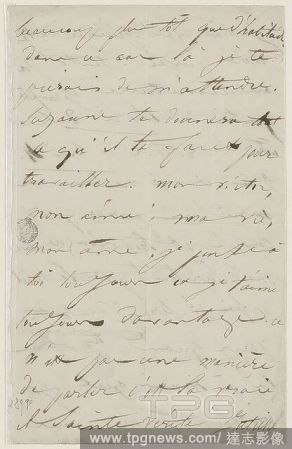 beaucoup plus tôt que d'habitude
dans ce cas là je te
prierais de m'attendre.
Suzanne te donnera tout
ce qu'il te faut pour
travailler. mon Victor,
mon aimé, ma vie,
mon âme, je pense à
toi toujours et je t'aime
toujours davantage ce
n'est pas une manière
de parler c'est la vraie
et Sainte vérité
TPG
www.tpgnews.com / 達志影像